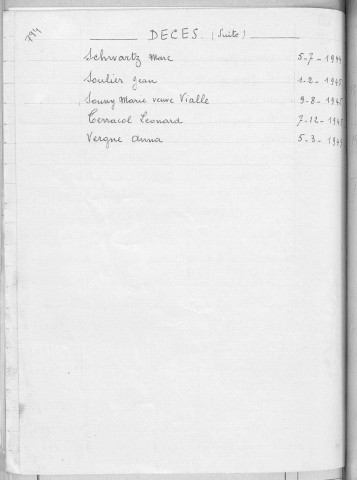 DECES. (Suite)
Schwartz Marc 5-7-1944
Soulier Jean 1-2-1945
Souny Marie veuve Vialle 9-8-1945
Terracol Leonard 7-12-1945
Vergne Anna 5-3-1945